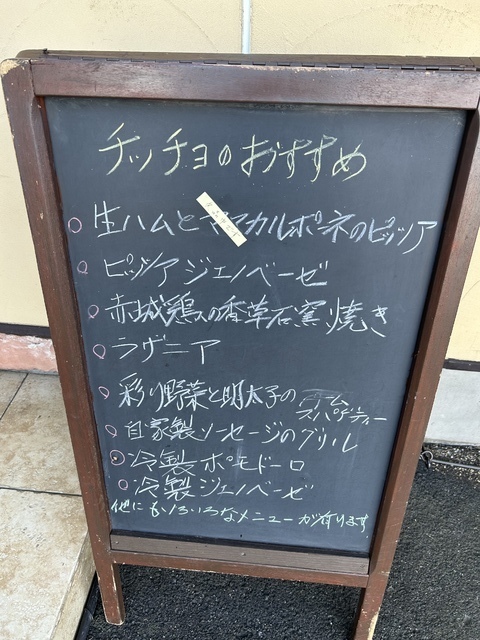 チッチョのおすすめ
生ハムとマスカルポーネのピッツア
ピッツア ジェノベーゼ
赤城鶏の香草石窯焼き
ラザニア
彩り野菜と明太子の
スパゲティー
自家製ソーセージのグリル
冷製ポモドーロ
冷製ジェノベーゼ
他にもいろいろなメニューが有ります